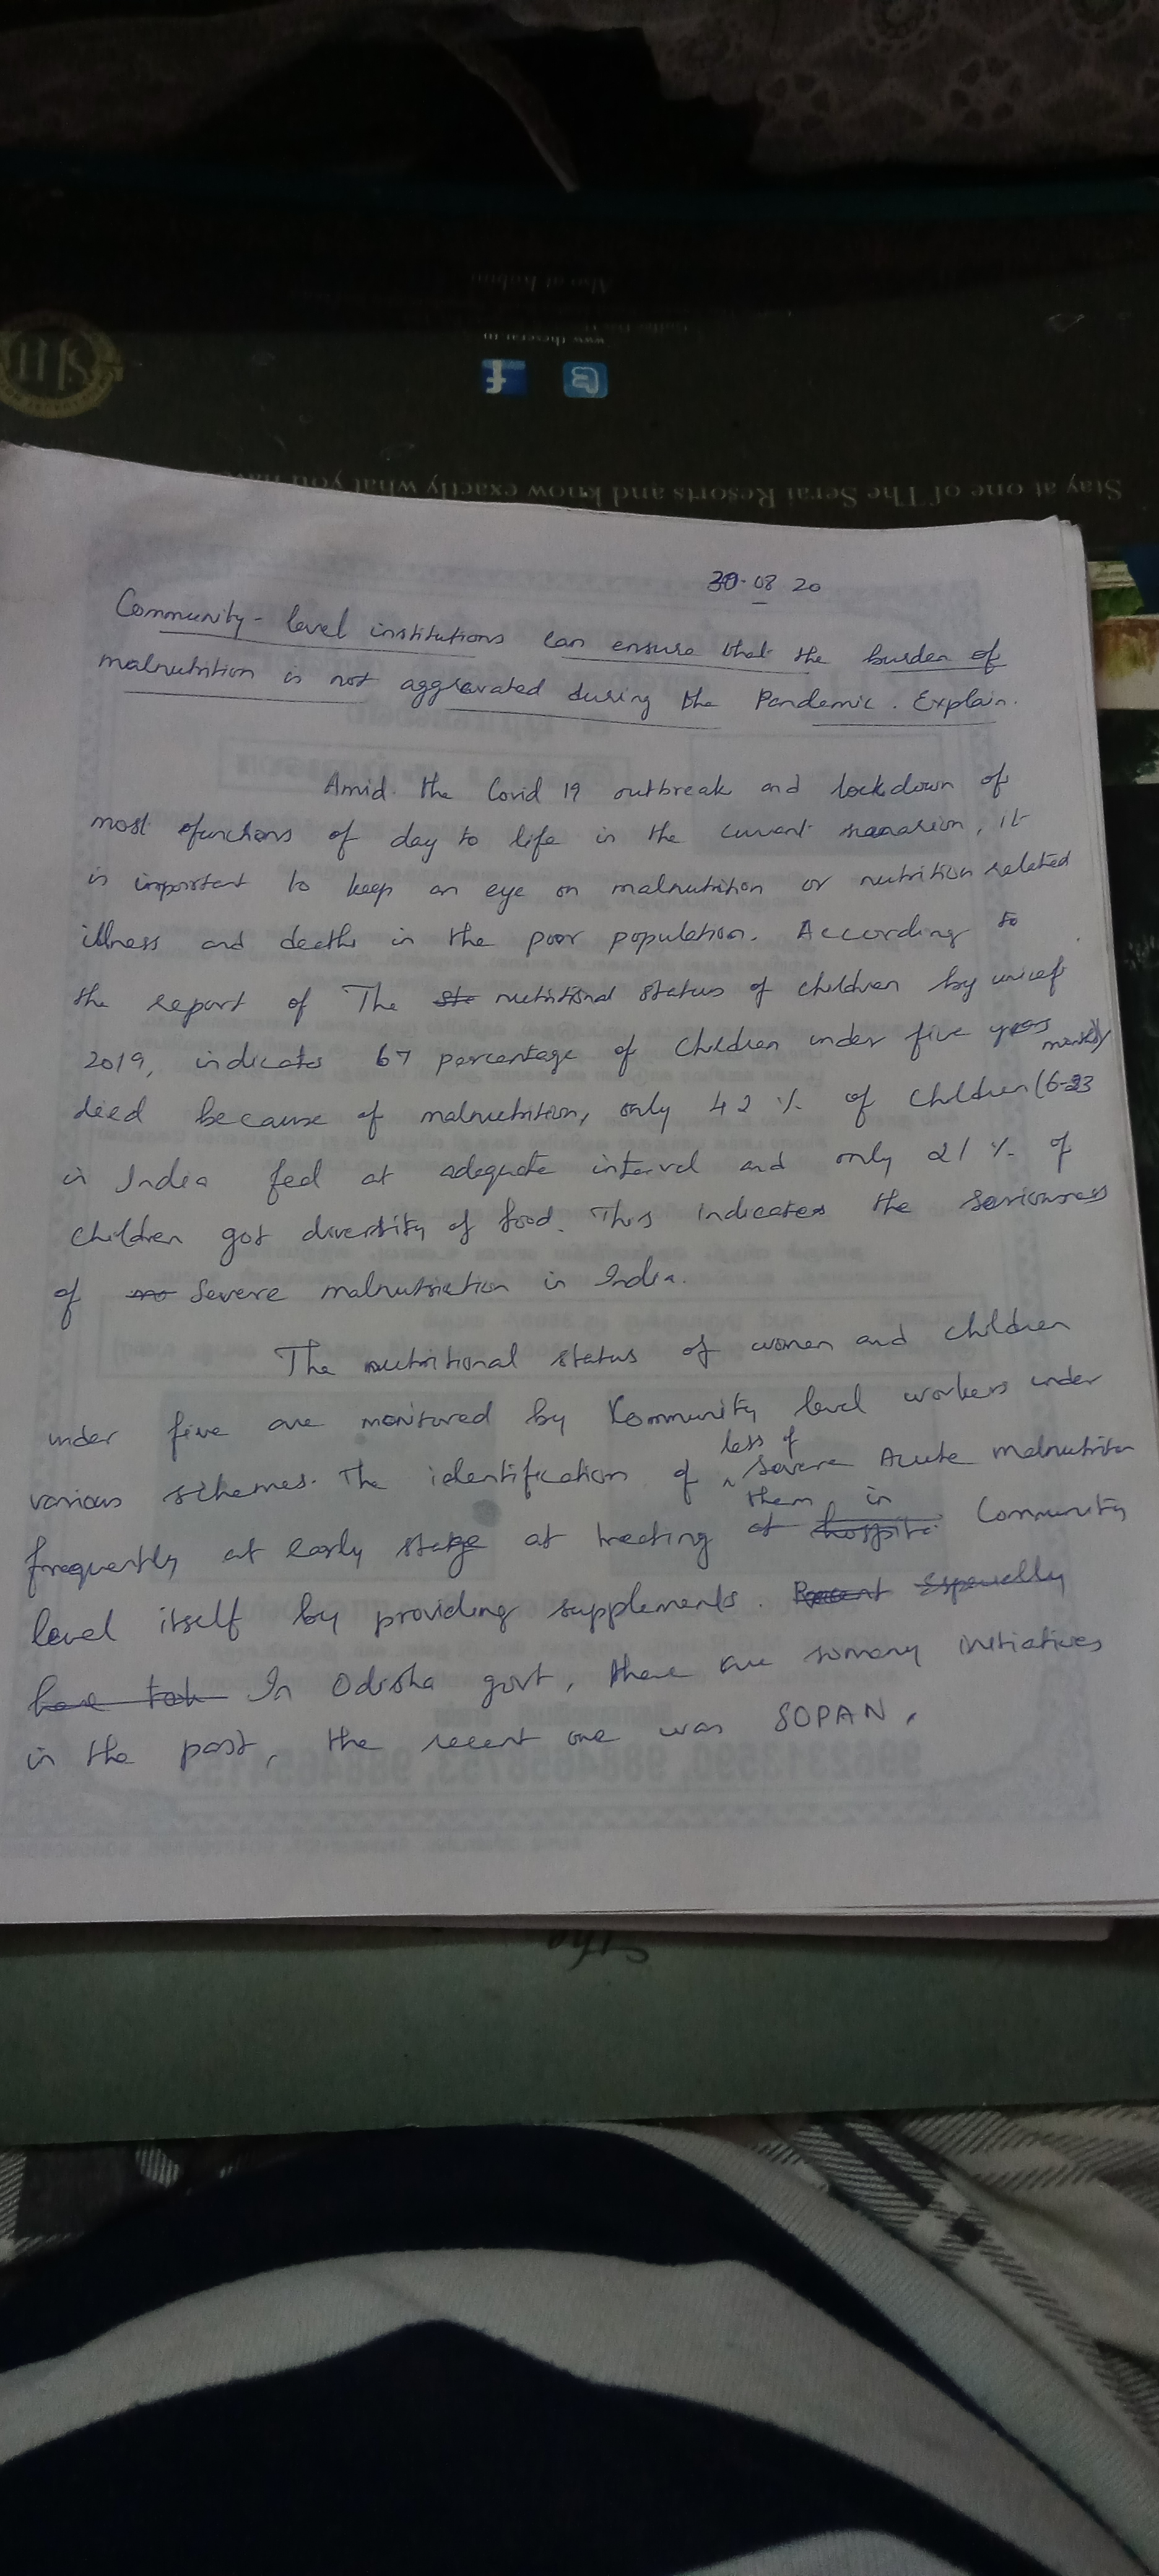 Abu at Kabini
www.theserai.in
f
Stay at one of The Serai Resorts and know exactly what you
30-08 20
Community-level institutions can ensure that the burden of
malnutrition is not aggravated during the Pandemic. Explain.
Amid the Covid 19 outbreak and lockdown of
most functions of day to life in the current, it
is important to keep an eye on malnutrition or nutrition related
illness and deaths in the poor population. According to
the report of The nutritional status of children by unicef
2019, indicates 67 percentage of children under five years
died because of malnutrition, only 42 % of children (6-23 months)
in India fed at adequate interval and only 21 % of
children got diversity of food. This indicates the seriousness
of severe malnutrition in India.
The nutritional status of women and children
under five are monitored by Community level workers under
various schemes. The identification of less of severe Acute malnutrition
frequently at early stage at treating them in Community
level itself by providing supplements. especially
In Odisha govt, there are somany initiatives
in the past, the recent one was SOPAN.
The